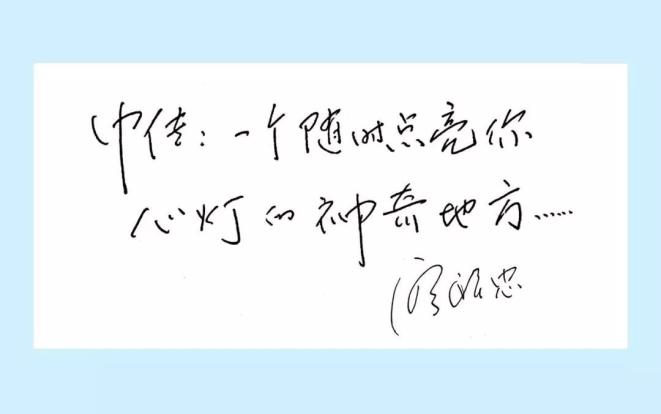 中传：一个随时点亮你
心灯的神奇地方……